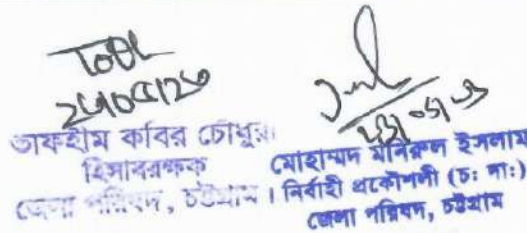 তাফহীম কবির চৌধুরী
হিসাবরক্ষক
জেলা পরিষদ, চট্টগ্রাম।
মোহাম্মদ মনিরুল ইসলাম
নির্বাহী প্রকৌশলী (চ: দা:)
জেলা পরিষদ, চট্টগ্রাম